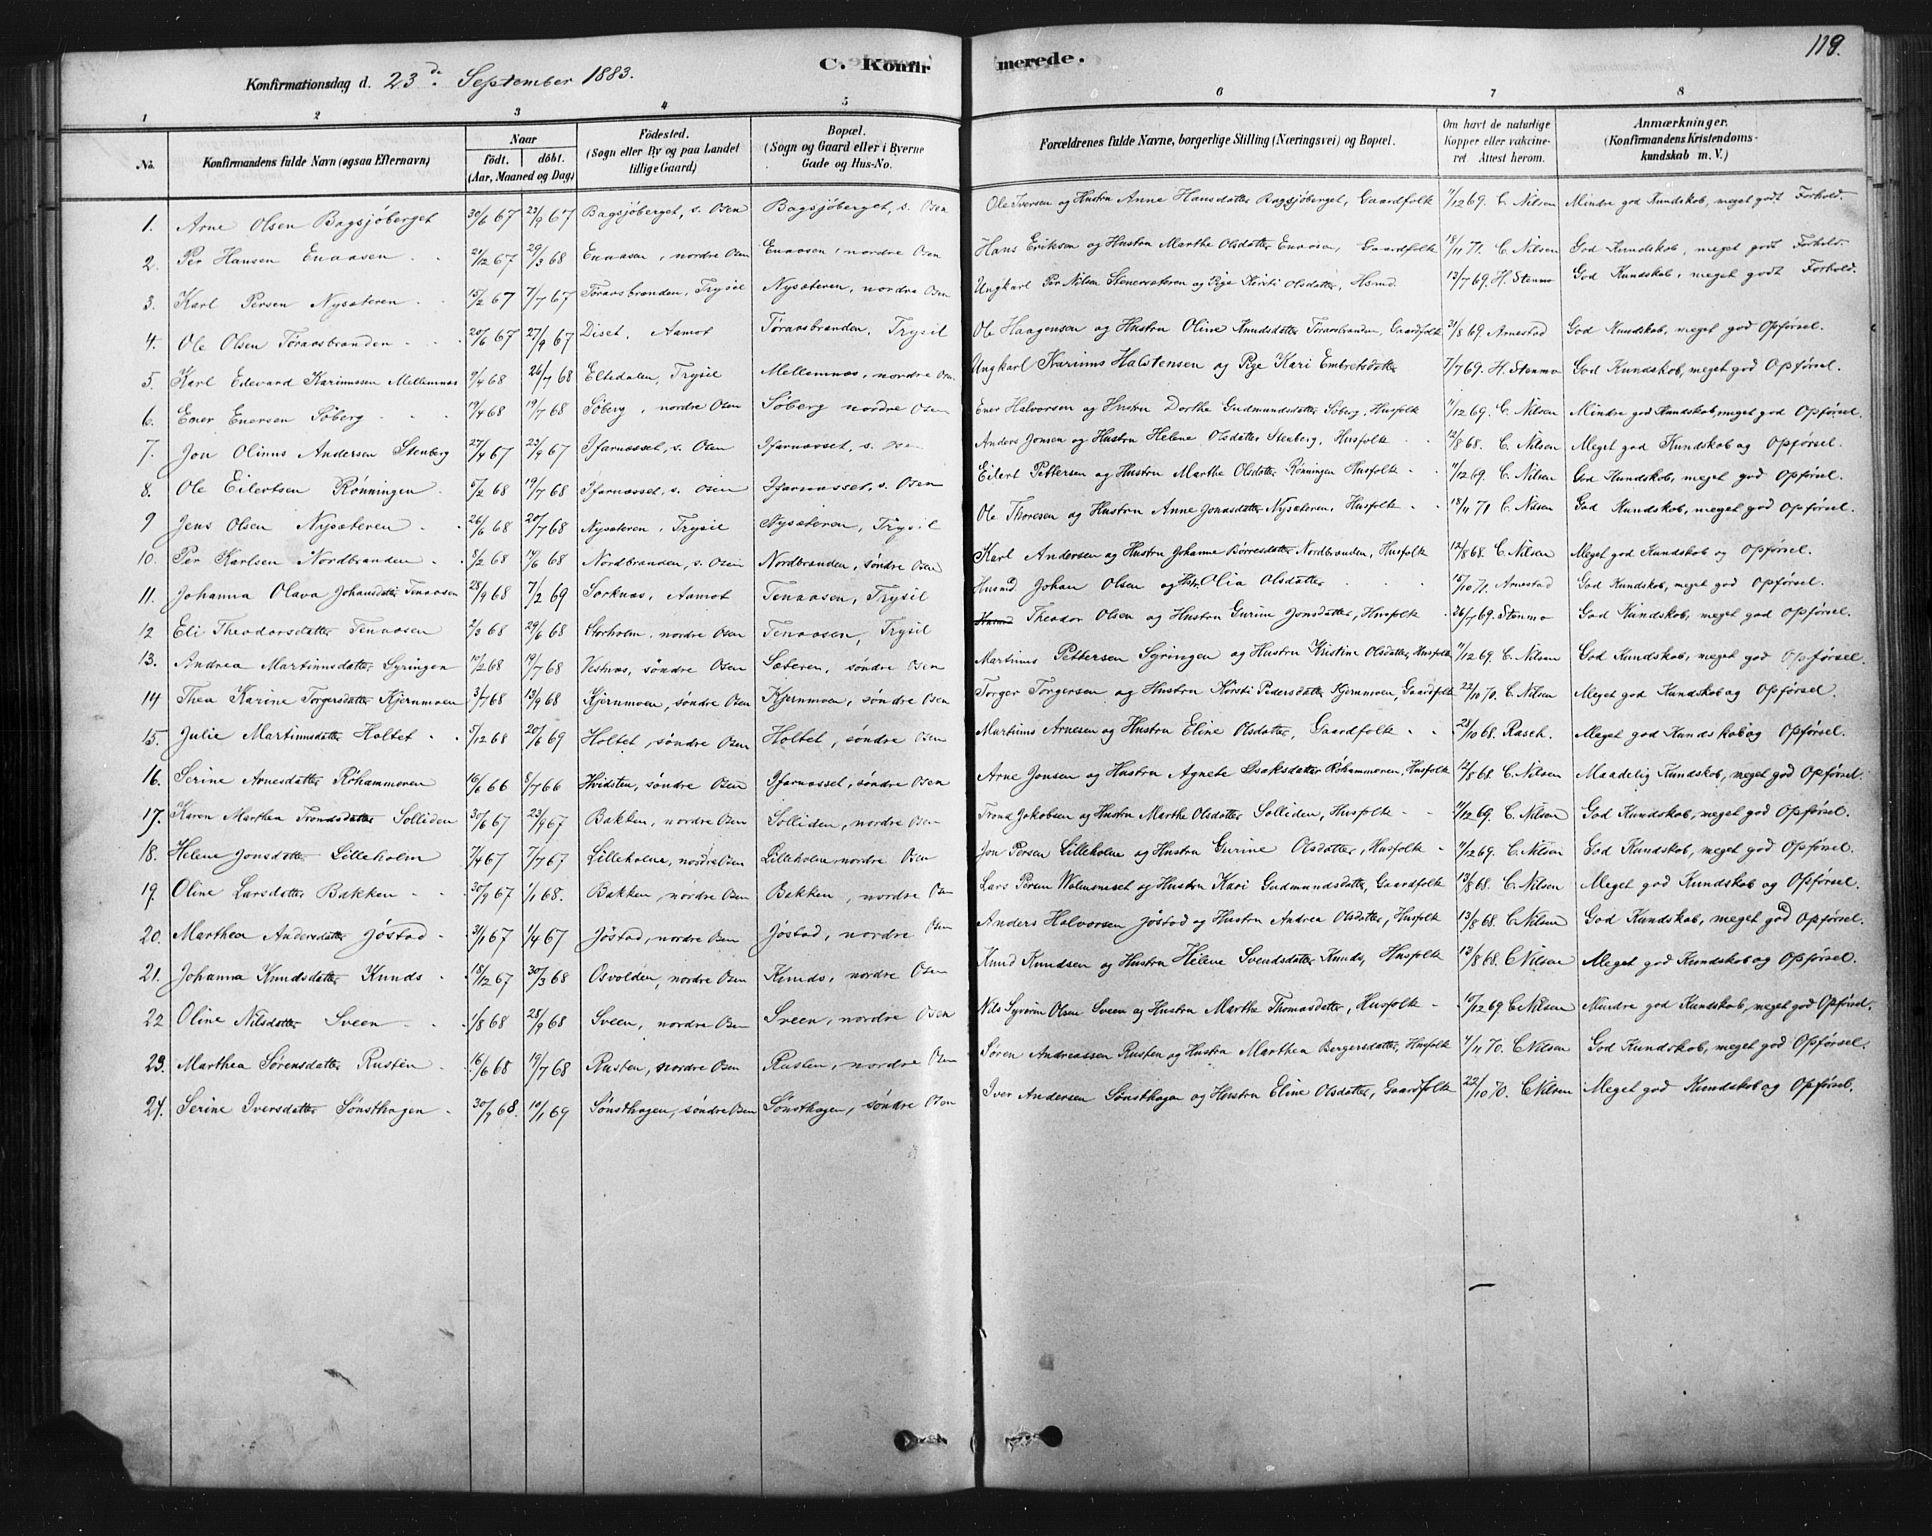 119.
Konfirmationsdag d. 23de September 1883. C. Konfirmerede.
1 2 3 4 5 6 7 8
No. Konfirmandens fulde Navn (ogsaa Efternavn) Naar födt. döbt. (Aar, Maaned og Dag) Födested. (Sogn eller By og paa Landet tillige Gaard) Bopæl. (Sogn og Gaard eller i Byerne Gade og Hus-No. Forældrenes fulde Navne, borgerlige Stilling (Næringsvei) og Bopæl. Om havt de naturlige Kopper eller vakcineret. Attest herom. Anmærkninger. (Konfirmandens Kristendomskundskab m. V.)
1. Arne Olsen Bagsjøberget 30/6 67 23/9 67 Bagsjøberget, s. Osen Bagsjøberget, s. Osen Ole Iversen og Hustru Anne Hansdatter Bagsjøberget, Gaardfolk 11/12 69. C. Nilsen Mindre god Kundskab, meget godt Forhold.
2. Per Hansen Enaasen 21/12 67 29/3 68 Enaasen, nordre Osen Enaasen, nordre Osen Hans Eriksen og Hustru Marthe Olsdatter Enaasen, Gaardfolk 18/11 71. C. Nilsen God Kundskab, meget godt Forhold.
3. Karl Persen Nysæteren 15/2 67 7/7 67 Tøraasbranden, Trysil Nysæteren, nordre Osen Ungkarl Per Nilsen Stenersæteren og Pige Kirsti Olsdatter, Hsmd. 13/7 69. H. Stenmo God Kundskab, meget godt Forhold.
4. Ole Olsen Tøraasbranden 20/6 67 27/9 67 Diset, Aamot Tøraasbranden, Trysil Ole Haagensen og Hustru Oline Knudsdatter Tøraasbranden, Gaardfolk 31/8 69. Arnestad God Kundskab, meget god Opførsel.
5. Karl Edevard Karinusen Mellemnæs 9/4 68 26/7 68 Eltedalen, Trysil Mellemnæs, nordre Osen Ungkarl Karinus Halstensen og Pige Kari Embretsdatter 7/7 69. H. Stenmo God Kundskab, meget god Opførsel.
6. Ener Enersen Søberg 19/4 68 19/7 68 Søberg, nordre Osen Søberg nordre Osen Ener Halvorsen og Hustru Dorthe Gudmundsdatter Søberg, Husfolk 11/12 69. C. Nilsen Mindre god Kundskab, meget god Opførsel.
7. Jon Olinus Andersen Stenberg 27/4 67 23/9 67 Ifarnæsset, s. Osen Ifarnæsset, s. Osen Anders Jonsen og Hustru Helene Olsdatter Stenberg, Husfolk 12/8 68. C. Nilsen Meget god Kundskab og Opførsel.
8. Ole Eilertsen Rønningen 5/2 68 19/7 68 Ifarnæsset, s. Osen Ifarnæsset, s. Osen Eilert Pettersen og Hustru Marthe Olsdatter Rønningen Husfolk 11/12 69. C. Nilsen God Kundskab, meget god Opførsel.
9 Jens Olsen Nysæteren 26/6 68 20/7 68 Nysæteren, Trysil Nysæteren, Trysil Ole Thoresen og Hustru Anne Jonasdatter Nysæteren, Husfolk 18/11 71 C. Nilsen God Kundskab, meget god Opførsel.
10. Per Karlsen Nordbranden 5/2 68 17/6 68 Nordbranden, s. Osen Nordbranden, søndre Osen Karl Andersen og Hustru Johanne Børresdatter Nordbranden, Husfolk 12/8 68. C. Nilsen Meget god Kundskab og Opførsel.
11. Johanna Olava Johansdatter Tenaasen 28/9 68 7/2 69 Sorknæs, Aamot Tenaasen, Trysil Husmd Johan Olsen og Hstr Olia Olsdatter 15/10 71. Arnestad God Kundskab, meget god Opførsel.
12 Eli Theodorsdatter Tenaasen 2/3 68 29/6 68 Storholm, nordre Osen Tenaasen, Trysil Husmd Theodor Olsen og Hustru Gurine Jonsdatter, Husfolk 26/7 69. Stenmo God Kundskab, meget god Opførsel.
13. Andrea Martinusdatter Syringen 10/2 68 19/7 68 Vestnæs, søndre Osen Sæteren, søndre Osen Martinus Pettersen Syringen og Hustru Kristine Olsdatter, Husfolk 11/12 69. C. Nilsen God Kundskab, meget god Opførsel.
14 Thea Karine Torgersdatter Kjernmoen 3/7 68 13/9 68 Kjernmoen, søndre Osen Kjernmoen, søndre Osen Torger Torgersen og Hustru Kirsti Pedersdatter Kjernmoen, Gaardfolk 22/10 70. C. Nilsen Meget god Kundskab og Opførsel.
15. Julie Martinusdatter Holtet 5/12 68 20/6 69 Holtet, søndre Osen Holtet, søndre Osen Martinus Arnesen og Hustru Eline Olsdatter, Gaardfolk 23/10 68. Rasch. Meget god Kundskab og Opførsel.
16. Serine Arnesdatter Røhammeren 16/6 66 8/7 66 Hvidsten, søndre Osen Ifarnæsset, søndre Osen Arne Jonsen og Hustru Agnete Isaksdatter Røhammeren, Husfolk 12/8 68. C. Nilsen Maadelig Kundskab, meget god Opførsel.
17. Karen Marthea Trondsdatter Solliden 30/6 67 23/9 67 Bakken, nordre Osen Solliden, nordre Osen Trond Jakobsen og Hustru Marthe Olsdatter Solliden, Husfolk 11/12 69. C. Nilsen God Kundskab, meget god Opførsel.
18. Helene Jonsdatter Lilleholm 7/4 67 7/7 67 Lilleholm, nordre Osen Lilleholm nordre Osen Jon Persen Lilleholm og Hustru Gurine Olsdatter, Husfolk 11/12 69. C. Nilsen God Kundskab, meget god Opførsel.
19. Oline Larsdatter Bakken 30/9 67 1/1 68. Bakken, nordre Osen Bakken, nordre Osen Lars Persen og Hustru Kari Gudmundsdatter, Gaardfolk 13/8 68. C. Nilsen Meget god Kundskab og Opførsel.
20. Marthea Andersdatter Jøstad 31/1 67 1/4 67 Jøstad, nordre Osen Jøstad, nordre Osen Anders Halvorsen Jøstad og Hustru Andrea Olsdatter, Husfolk 13/8 68. C. Nilsen God Kundskab, meget god Opførsel.
21. Johanna Knudsdatter Knuds 18/12 67 30/3 68 Osvolden, nordre Osen Knuds, nordre Osen Knud Knudsen og Hustru Helene Svendsdatter Knuds, Husfolk 13/8 68. C Nilsen Meget god Kundskab og Opførsel.
22 Oline Nilsdatter Sveen 1/8 68 28/9 68 Sveen, nordre Osen Sveen, nordre Osen Nils Syverin Olsen Sveen og Hustru Marthe Thomasdatter, Husfolk 10/12 69 C Nilsen Mindre god Kundskab, meget god Opførsel.
23. Marthea Sørensdatter Rusten 16/6 68 19/7 68 Rusten, nordre Osen Rusten, nordre Osen Søren Andreassen Rusten og Hustru Marthea Bergersdatter, Husfolk 7/11 70. C Nilsen God Kundskab, meget god Opførsel.
24. Serine Iversdatter Sønsthagen 30/9 68. 10/1 69 Sønsthagen, søndre Osen Sønsthagen, søndre Osen Iver Andersen Sønsthagen og Hustru Eline Olsdatter, Gaardfolk 22/10 70. C Nilsen Meget god Kundskab og Opførsel.